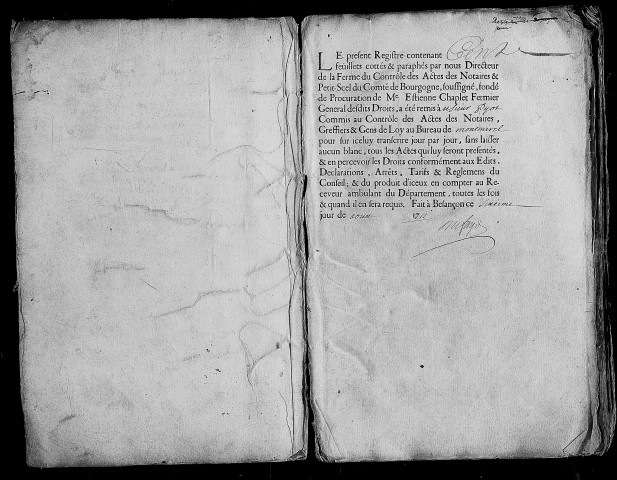 LE present Registre contenant Cent
feuillets cottés & paraphés par nous Directeur
de la Ferme du Contrôle des Actes des Notaires &
Petit-Scel du Comté de Bourgogne, soussigné, fondé
de Procuration de Me. Estienne Chaplet Fermier
General desdits Droits, a été remis à
Commis au Contrôle des Actes des Notaires,
Greffiers & Gens de Loy au Bureau de
pour sur iceluy transcrire jour par jour, sans laisser
aucun blanc, tous les Actes qui luy seront présentés,
& en percevoir les Droits conformément aux Edits,
Declarations, Arrêts, Tarifs & Reglemens du
Conseil; & du produit d'iceux en compter au Re-
ceveur ambulant du Département, toutes les fois
& quand il en sera requis. Fait à Besançon ce
jour de